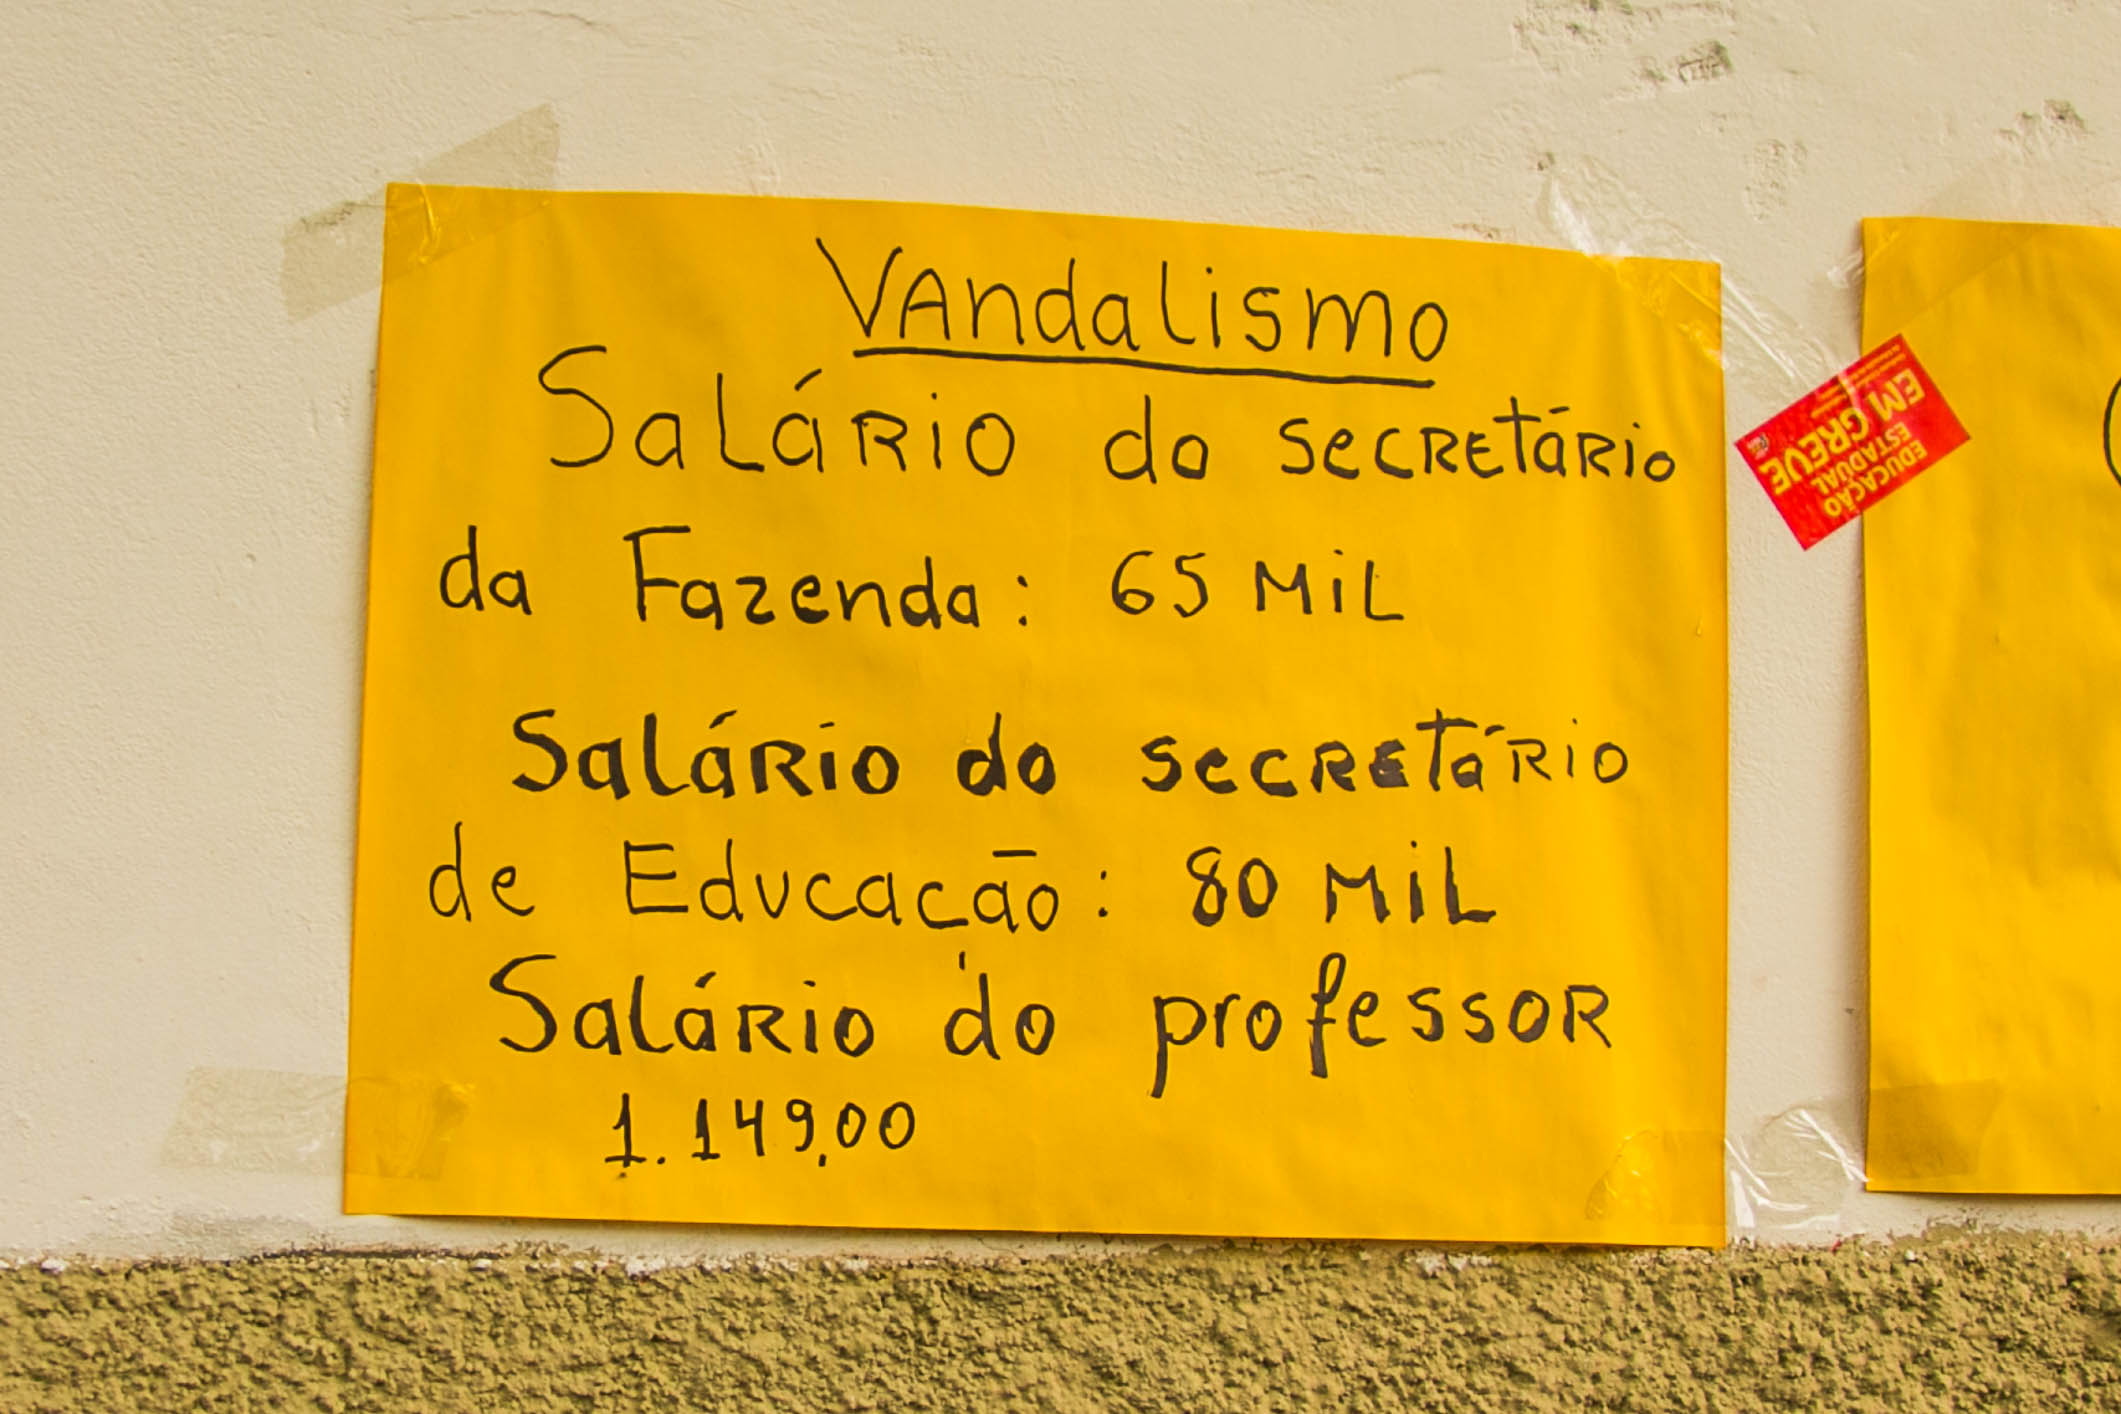 Vandalismo
Salário do secretário
da Fazenda: 65 MIL
Salário do secretário
de Educação: 80 MIL
Salário do professor
1.149,00
EDUCAÇÃO
ESTADUAL
EM GREVE